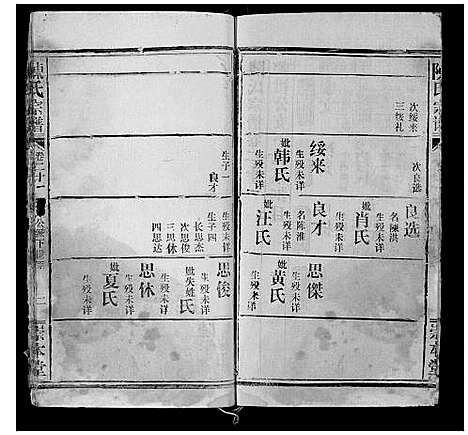 陳氏宗譜
次绥来
三绥礼
次良选
绥来
生殁未详
妣韩氏
生殁未详
良选
名陳洪
生殁未详
妣肖氏
生殁未详
良才
名陈淮
生殁未详
妣汪氏
生殁未详
思傑
生殁未详
妣黄氏
生殁未详
崇本堂
生子一
良才
生殁未详
生子四
长思杰
次思俊
三思休
四思达
思俊
生殁未详
妣失姓氏
生殁未详
思休
生殁未详
妣夏氏
生殁未详
陳氏宗譜
卷二十一
崇本堂